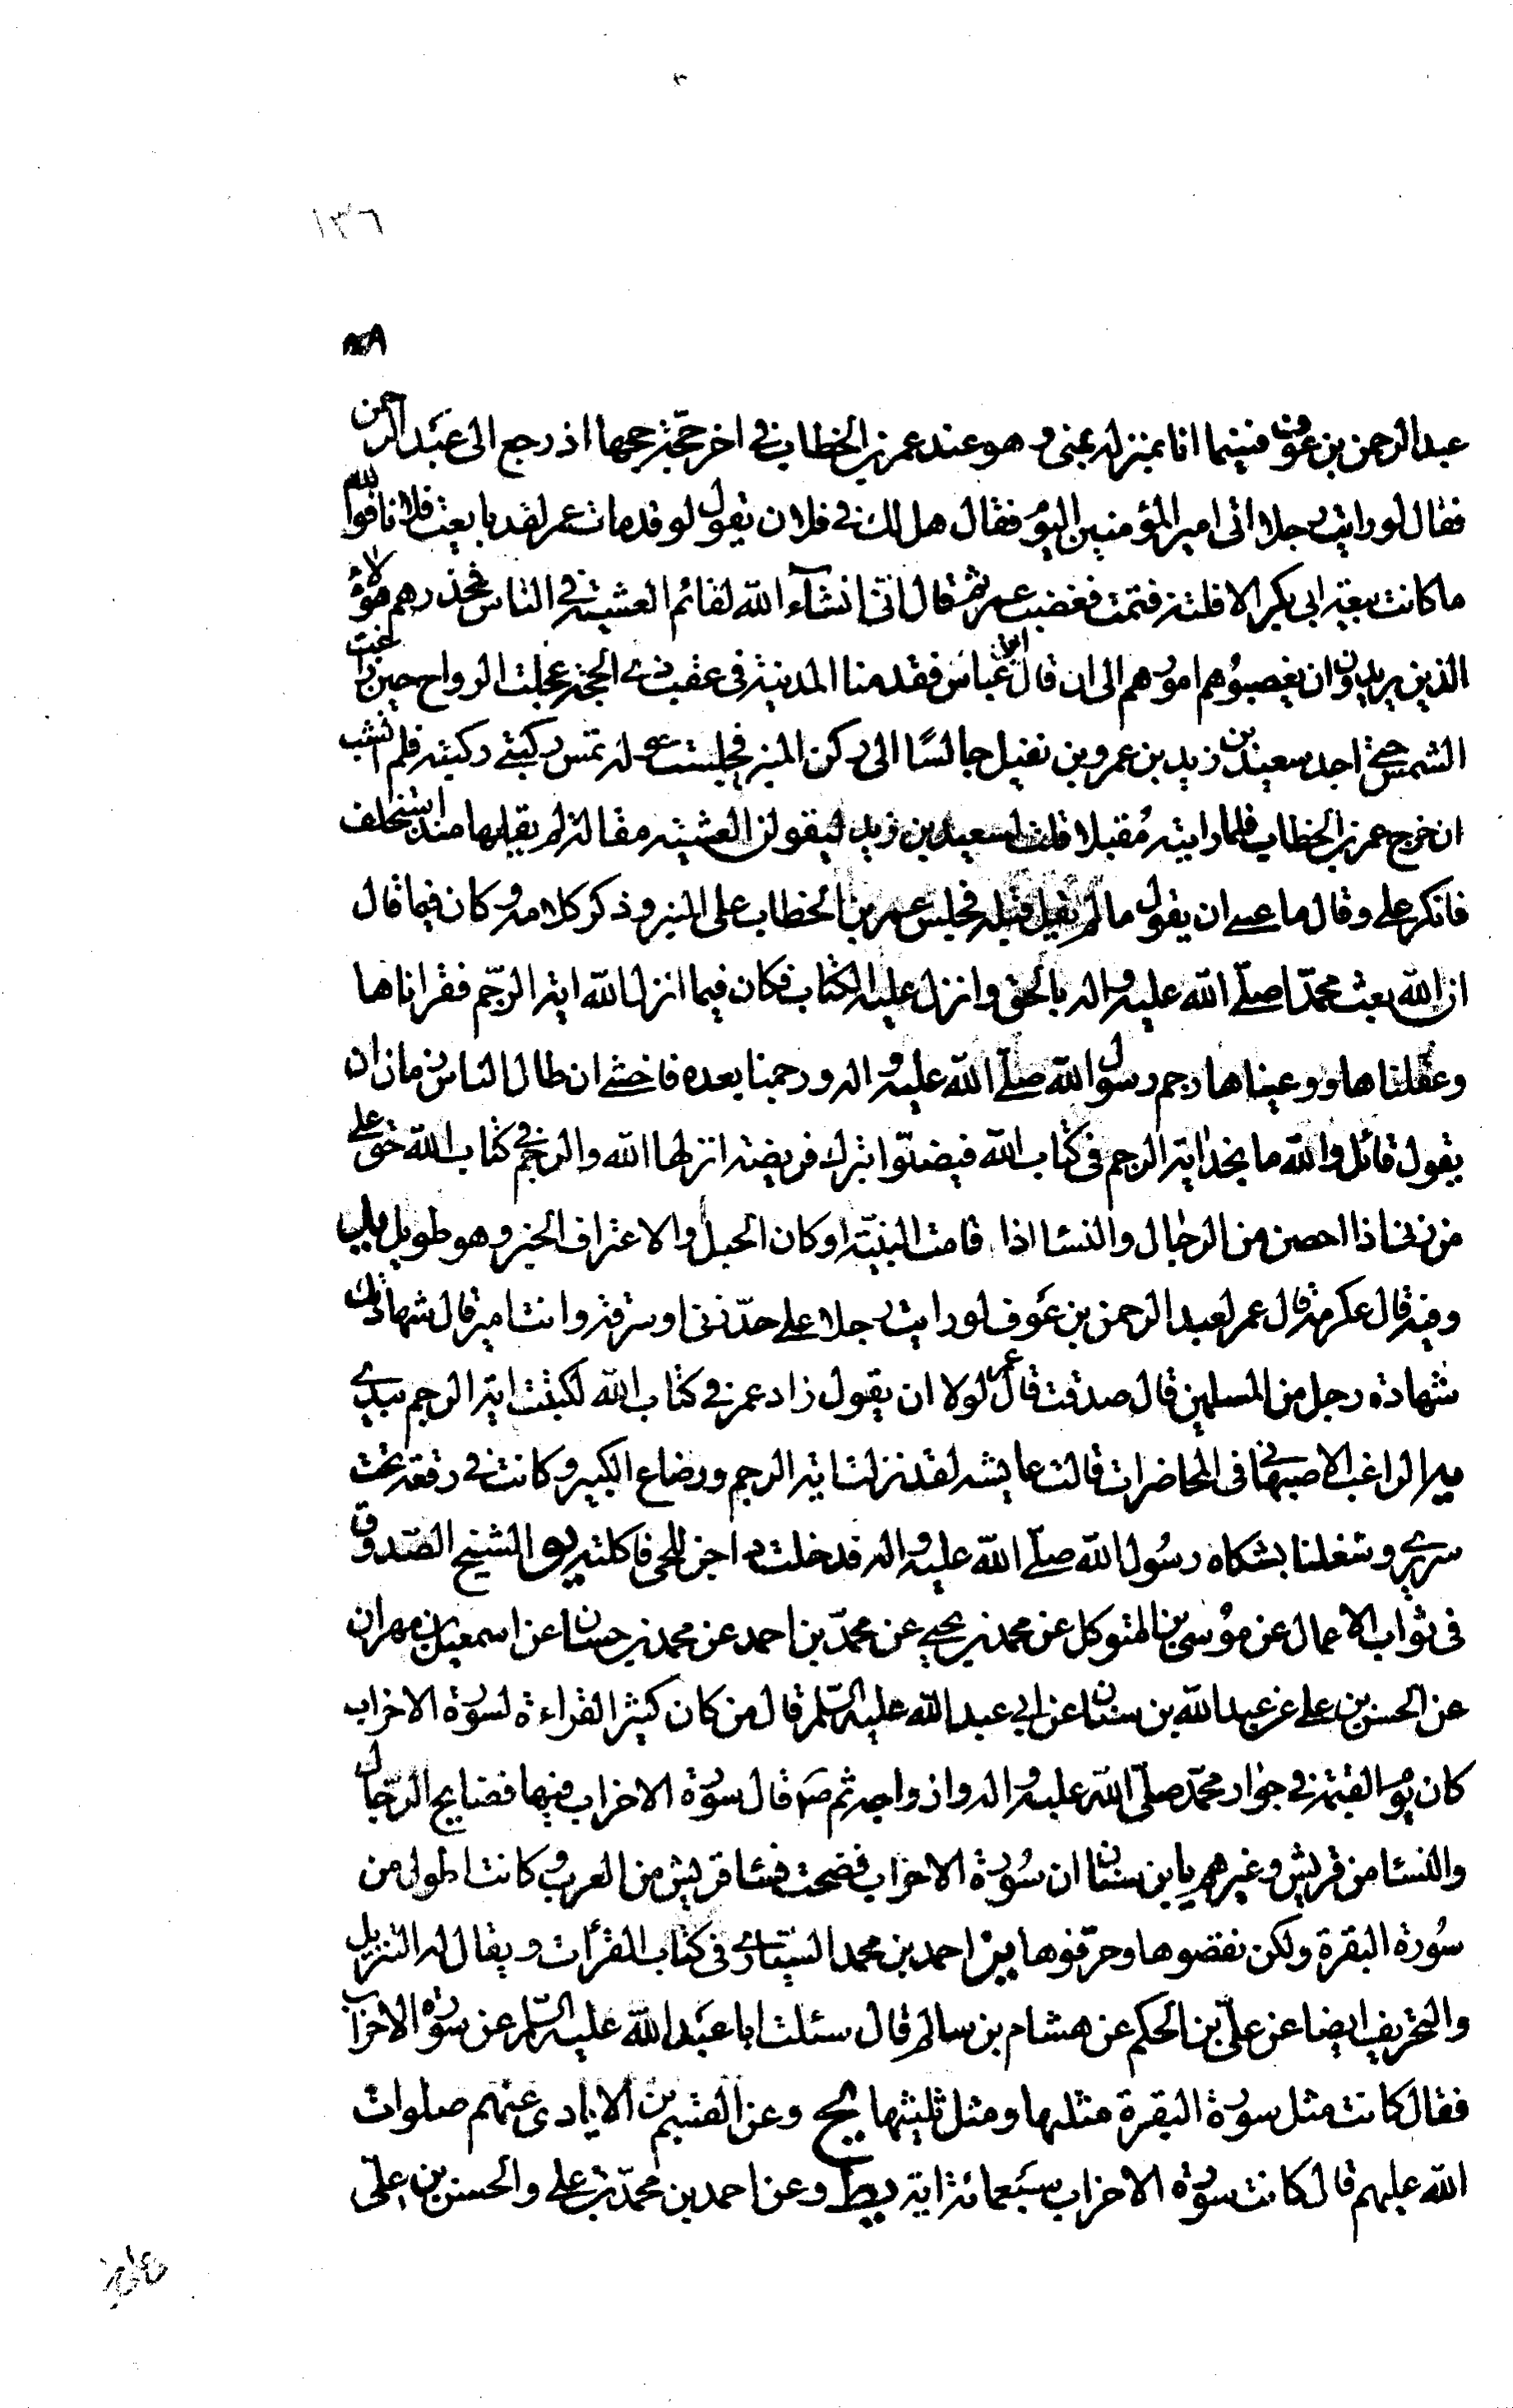 ١٣٦
عبد الرحمن بن عوف فبينما انا بمنزله بمنى وهو عند عمر بن الخطاب في اخر حجة حجها اذ رجع الى عبد الرحمن
فقال لو رايت رجلا اتى امير المؤمنين اليوم فقال هل لك في فلان يقول لو قد مات عمر لقد بايعت فلانا فوالله
ما كانت بيعة ابي بكر الا فلتة فتمت فغضب عمر ثم قال اني انشاء الله لقائم العشية في الناس فمحذرهم هؤلاء
الذين يريدون ان يغصبوهم امورهم الى ان قال ابن عباس فقدمنا المدينة في عقب ذي الحجة عجلت الرواح حين زاغت
الشمس حتى اجد سعيد بن زيد بن عمرو بن نفيل جالسًا الى ركن المنبر فجلست حوله تمس ركبتي ركبته فلم انشب
ان خرج عمر بن الخطاب فلما رايته مُقبلا قلت لسعيد بن زيد ليقولن العشية مقالة لم يقلها منذ استخلف
فانكر علي وقال ما عسى ان يقول ما لم يقل قبله فجلس عمر بن الخطاب على المنبر وذكر كلامه وكان فيما قال
ان الله بعث محمّدا صلّى الله عليه واله بالحق وانزل عليه الكتاب فكان فيما انزل الله اية الرجم فقراناها
وعقلناها ووعيناها رجم رسول الله صلّى الله عليه واله ورجمنا بعده فاخشى ان طال الناس زمان ان
يقول قائل والله ما نجد اية الرجم في كتاب الله فيضلّوا بترك فريضة انزلها الله والرجم في كتاب الله حق على
من زنى اذا احصن من الرجال والنسا اذا قامت البيّنة او كان الحبل والاعتراف الخبر وهو طويل
وفيه قال عكرمة قال عمر لعبد الرحمن بن عوف لو رايت رجلا على حدّ زنى او سرقة وانت امير قال شهادتك
شهادة رجل من المسلمين قال صدقت قال عمر لولا ان يقول زاد عمر في كتاب الله لكتبت اية الرجم بيدي
الراغب الاصبهاني في المحاضرات قالت عايشه لقد نزلت اية الرجم ورضاع الكبير وكانت في رقعة تحت
سريري وشغلنا بشكاه رسُول الله صلّى الله عليه واله فدخلت داجن للحي فاكلته الشيخ الصّدوق
في ثواب الاعمال عن موُسى بن المتوكل عن محمد بن يحيى عن محمّد بن احمد عن محمد بن حسان عن اسمعيل بن مهران
عن الحسن بن علي عن عبد الله بن سنان عن ابي عبد الله عليه السّلم قال من كان كثير القراءة لسورة الاحزاب
كان يوم القيمة في جوار محمّد صلّى الله عليه واله وازواجه ثم قال سورة الاحزاب فيها فضايح الرّجال
والنسا من قريش وغيرهم يا بن سنان ان سُورة الاحزاب فضحت نسا قريش من العرب وكانت اطول من
سُورة البقرة ولكن نقصوها وحرّفوها احمد بن محمد السيّاري في كتاب القرأت ويقال له التنزيل
والتحريف ايضا عن عليّ بن الحكم عن هشام بن سالم قال سئلت ابا عبد الله عليه السّلم عن سورة الاحزاب
فقال كانت مثل سورة البقرة مثلها ومثل ثلثيها يح وعن القسم بن الايادي عنهم صلوات
الله عليهم قال كانت سورة الاحزاب سبعمائة اية يط وعن احمد بن محمّد بن علي والحسن بن علي